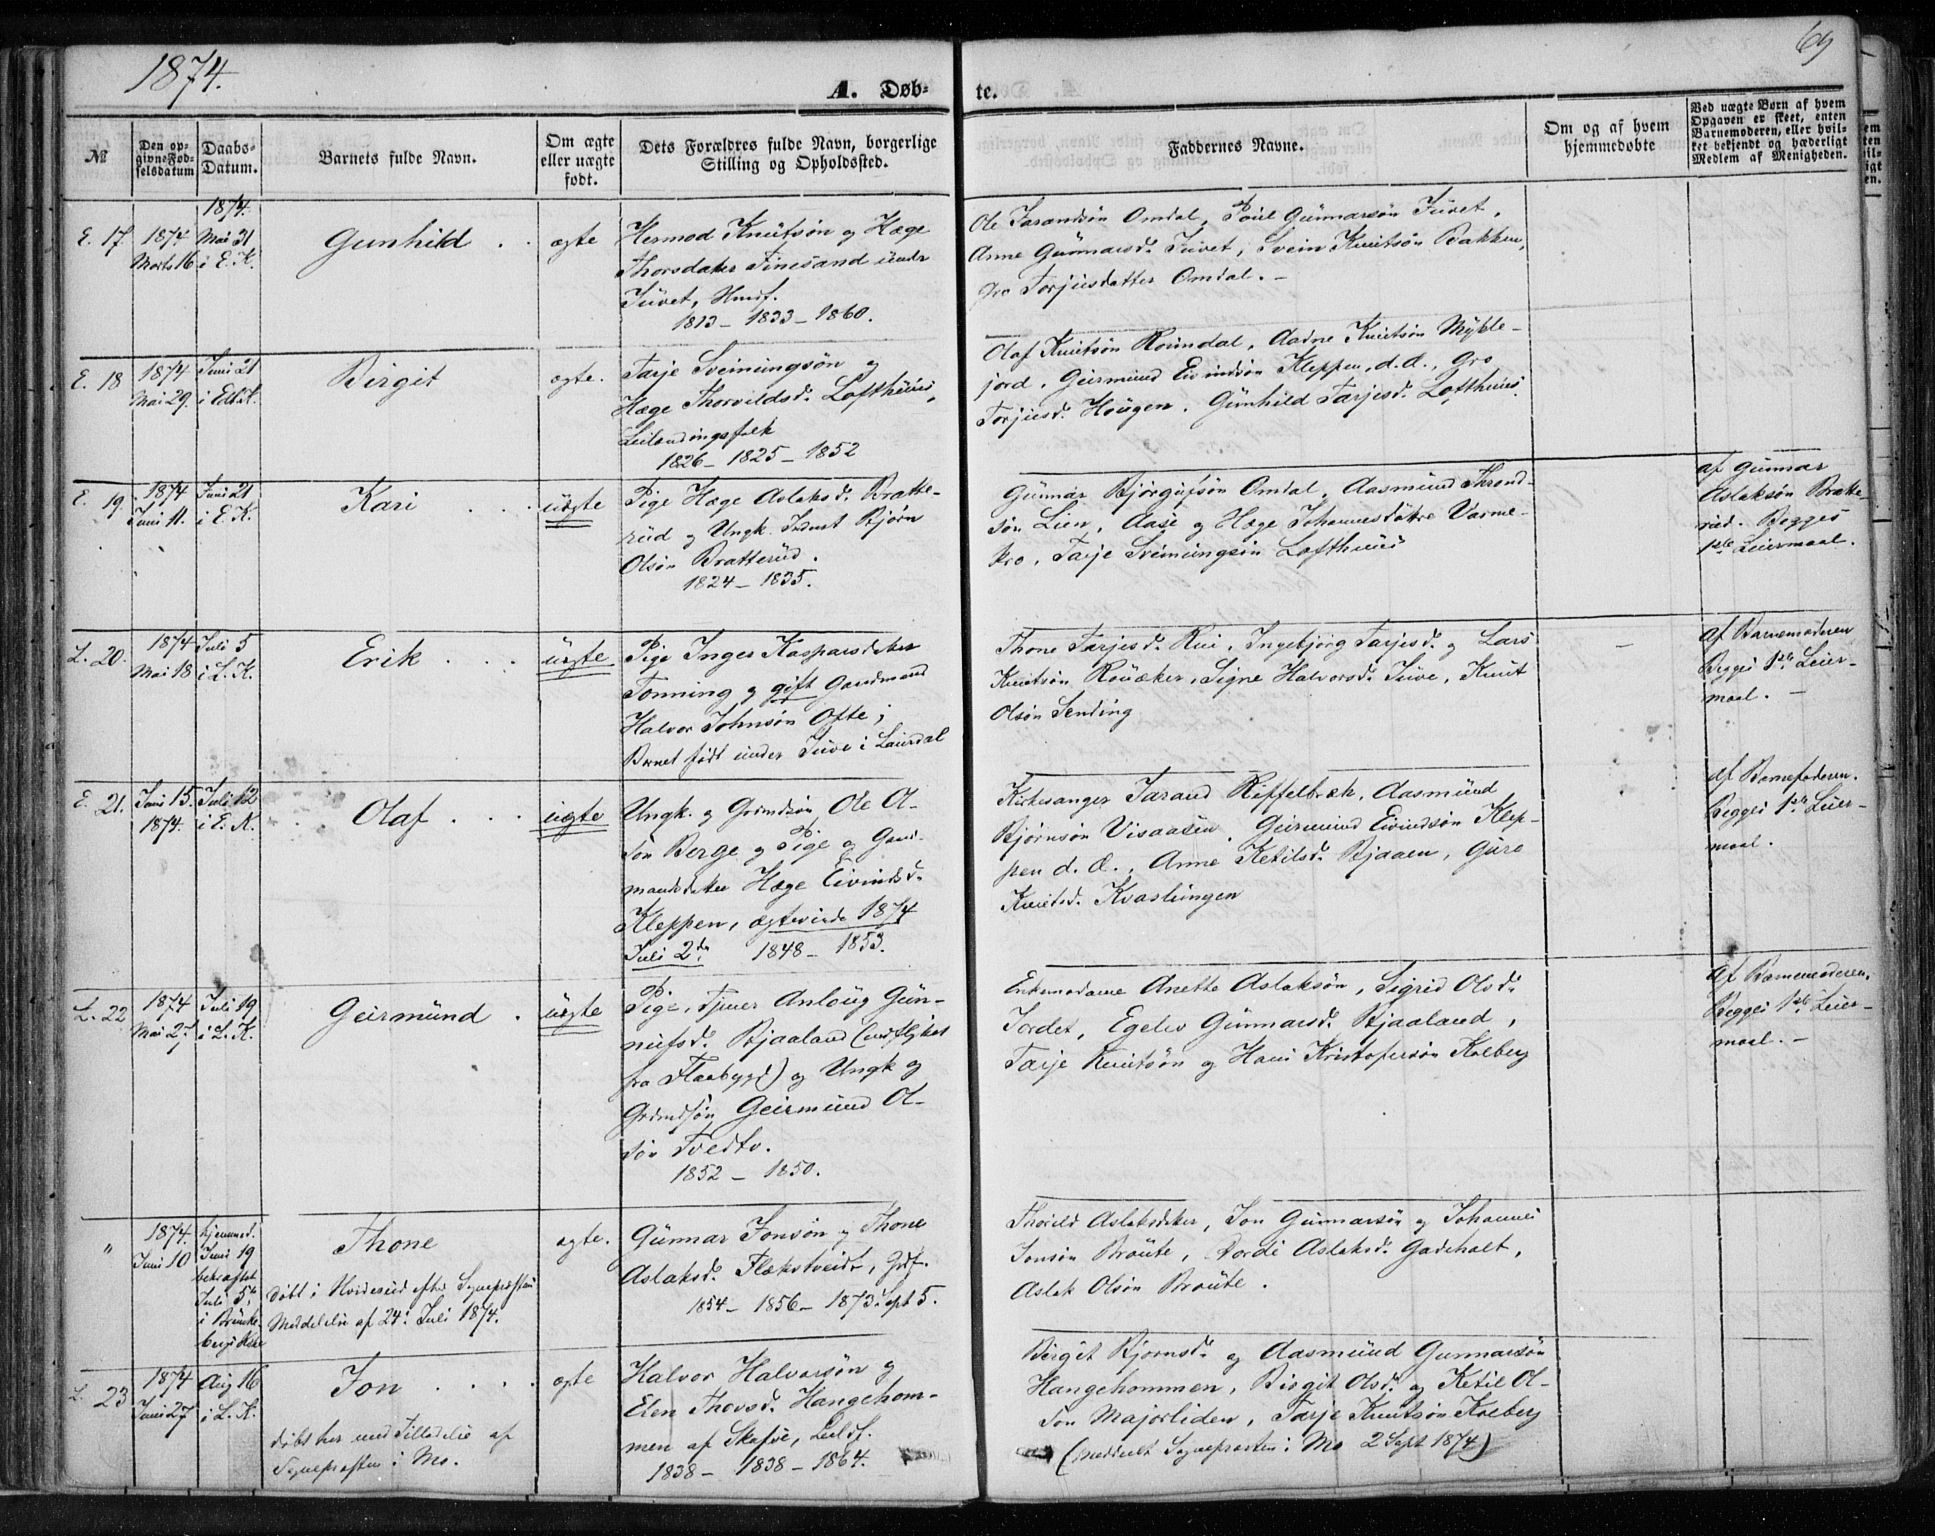 1874.
69
A. Døb-
te.
№
Den op-
givne Fød-
selsdatum
Daabs-
Datum.
Barnets fulde Navn.
Om ægte
eller uægte
født.
Dets Forældres fulde Navn, borgerlige
Stilling og Opholdssted.
Faddernes Navne.
Om og af hvem
hjemmedøbte
Ved uægte Børn af hvem
Opgaven er skeet, enten
Barnemoderen, eller hvil-
ket bekjendt og hæderligt
Medlem af Menigheden.
E. 17.
1874
Marts 16
1874.
Mai 31
i E. K.
Gunhild . .
ægte
Hermod Knutsøn og Hæge
Thorsdatter Finesand under
Juvet, Husf.
1813 – 1833 – 1860.
Ole Tarandsøn Omdal, Poul Gunnarsøn Juvet,
Anne Gunnarsd. Juvet, Svein Knutsøn Bakken,
Gro Torjusdatter Omdal. –
E. 18
1874
Mai 29.
Juni 21
i Eds K.
Birgit
ægte.
Tarje Sveinungsøn og
Hæge Thorvildsd. Lofthuus,
Leilendingsfolk
1826 – 1825 – 1852
Olaf Knutsøn Roundal, Aadne Knutsøn Mykle-
jord, Geirmund Eivindsøn Kleppen, d. d., Gro
Torjusd. Hougen, Gunhild Tarjesd. Lofthuus.
E. 19.
1874
Juni 11.
Juni 21
i E. K.
Kari . . .
uægte
Pige Hæge Aslaksd. Bratte-
rud og Ungk. Inderst Bjørn
Olsøn Bratterud.
1824 – 1835.
Gunnar Bjørgufsøn Omdal, Aasmund Thrond-
søn Lien, Aase og Hæge Johannesdøtre Varme-
kro, Tarje Sveinungsøn Lofthuus
af Gunnar
Aslaksøn Bratte-
rud. Begges
1ste Leiermaal.
L. 20.
1874
Mai 18
Juli 5
i L. K.
Erik . . .
uægte
Pige Inger Kaspersdatter
Tonning og gift Gaardmand
Halvor Johnsøn Ofte;
Barnet født under Juve i Laurdal
Thone Tarjesd. Rui, Ingebjørg Tarjesd. og Lars
Knutsøn Rouaker, Signe Halvorsd. Juve, Knut
Olsøn Sending
–
af Barnemoderen
Begges 1ste Leier-
maal. –
E. 21.
Juni 15.
1874.
Juli 12
i E. K.
Olaf . . .
uægte
Ungk. og Grmdsøn Ole Ol-
søn Berge og Pige og Gaard-
mandsdatter Hæge Eivindsd.
Kleppen, ægteviede 1874
Juli 2den 1848 – 1853.
Kirkesanger Tarand Riffelbræk, Aasmund
Bjørnsøn Visaasen, Geirmund Eivindsøn Klep-
pen d. Æ., Anne Ketilsd. Bjaaen, Guro
Knutsd. Kvaslungen
af Barnefaderen.
Begges 1ste Leier-
maal.
L. 22
1874
Mai 27
Juli 19
i L. K.
Geirmund .
uægte
Pige, Tjener Anloug Gun-
nufsd. Bjaaland (indflyttet
fra Flaabygd) og Ungk og
Grdmdsøn Geirmund Ol-
søn Tvedto.
1852 – 1850.
Enkemadame Anette Aslaksøn, Sigrid Olsd.
Jordet, Egelev Gunnarsd. Bjaaland,
Tarje Knutsøn og Hans Kristofersøn Kolberg
af Barnemoderen.
Begges 1ste Leier-
maal. –
"
1874.
Juni 10
hjemmed.
Juni 19
bekræftet
Juli 5te
i Brunke-
bergs Kirke
Thone
døbt i Hvideseid efter Sognepræstens
Meddelelse af 24. Juli 1874.
ægte.
Gunnar Jonsøn og Thone
Aslaksd. Flekstveidt, Grdf.
1854 – 1856 – 1873 Sept 5.
Thorild Aslaksdatter, Jon Gunnarsøn og Johannes
Jonsøn Broute, Dordi Aslaksd. Gadeholt,
Aslak Olsøn Broute.
L. 23
1874
Juni 27
Aug 16
i L. K.
Jon . . . .
døbt her med Tilladelse af
Sognepræsten i Mo.
ægte
Halvor Halvorsøn og
Elen Thorsd. Hangehom-
men af Skafse, Leilf.
1838 – 1838 – 1864.
Birgit Bjørnsd. og Aasmund Gunnarsøn
Hangehommen, Birgit Olsd. og Ketil Ol-
søn Majorliden, Tarje Knutsøn Kolberg
(meddeelt Sognepræsten i Mo 2 Sept 1874)